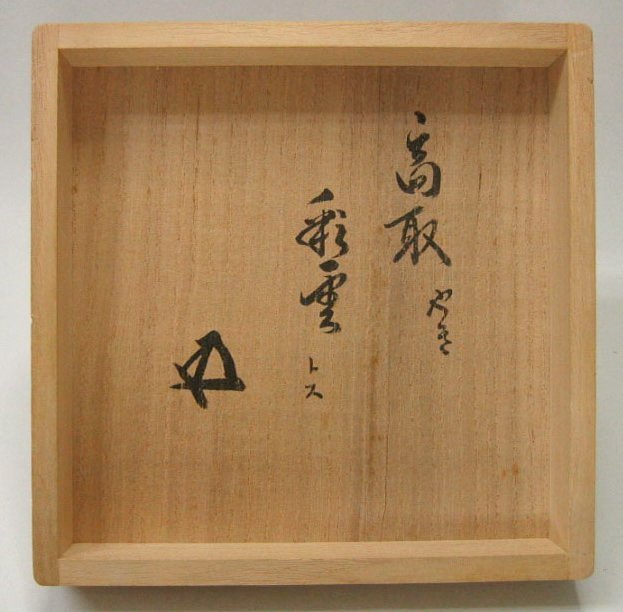 高取やき
彩雲トス